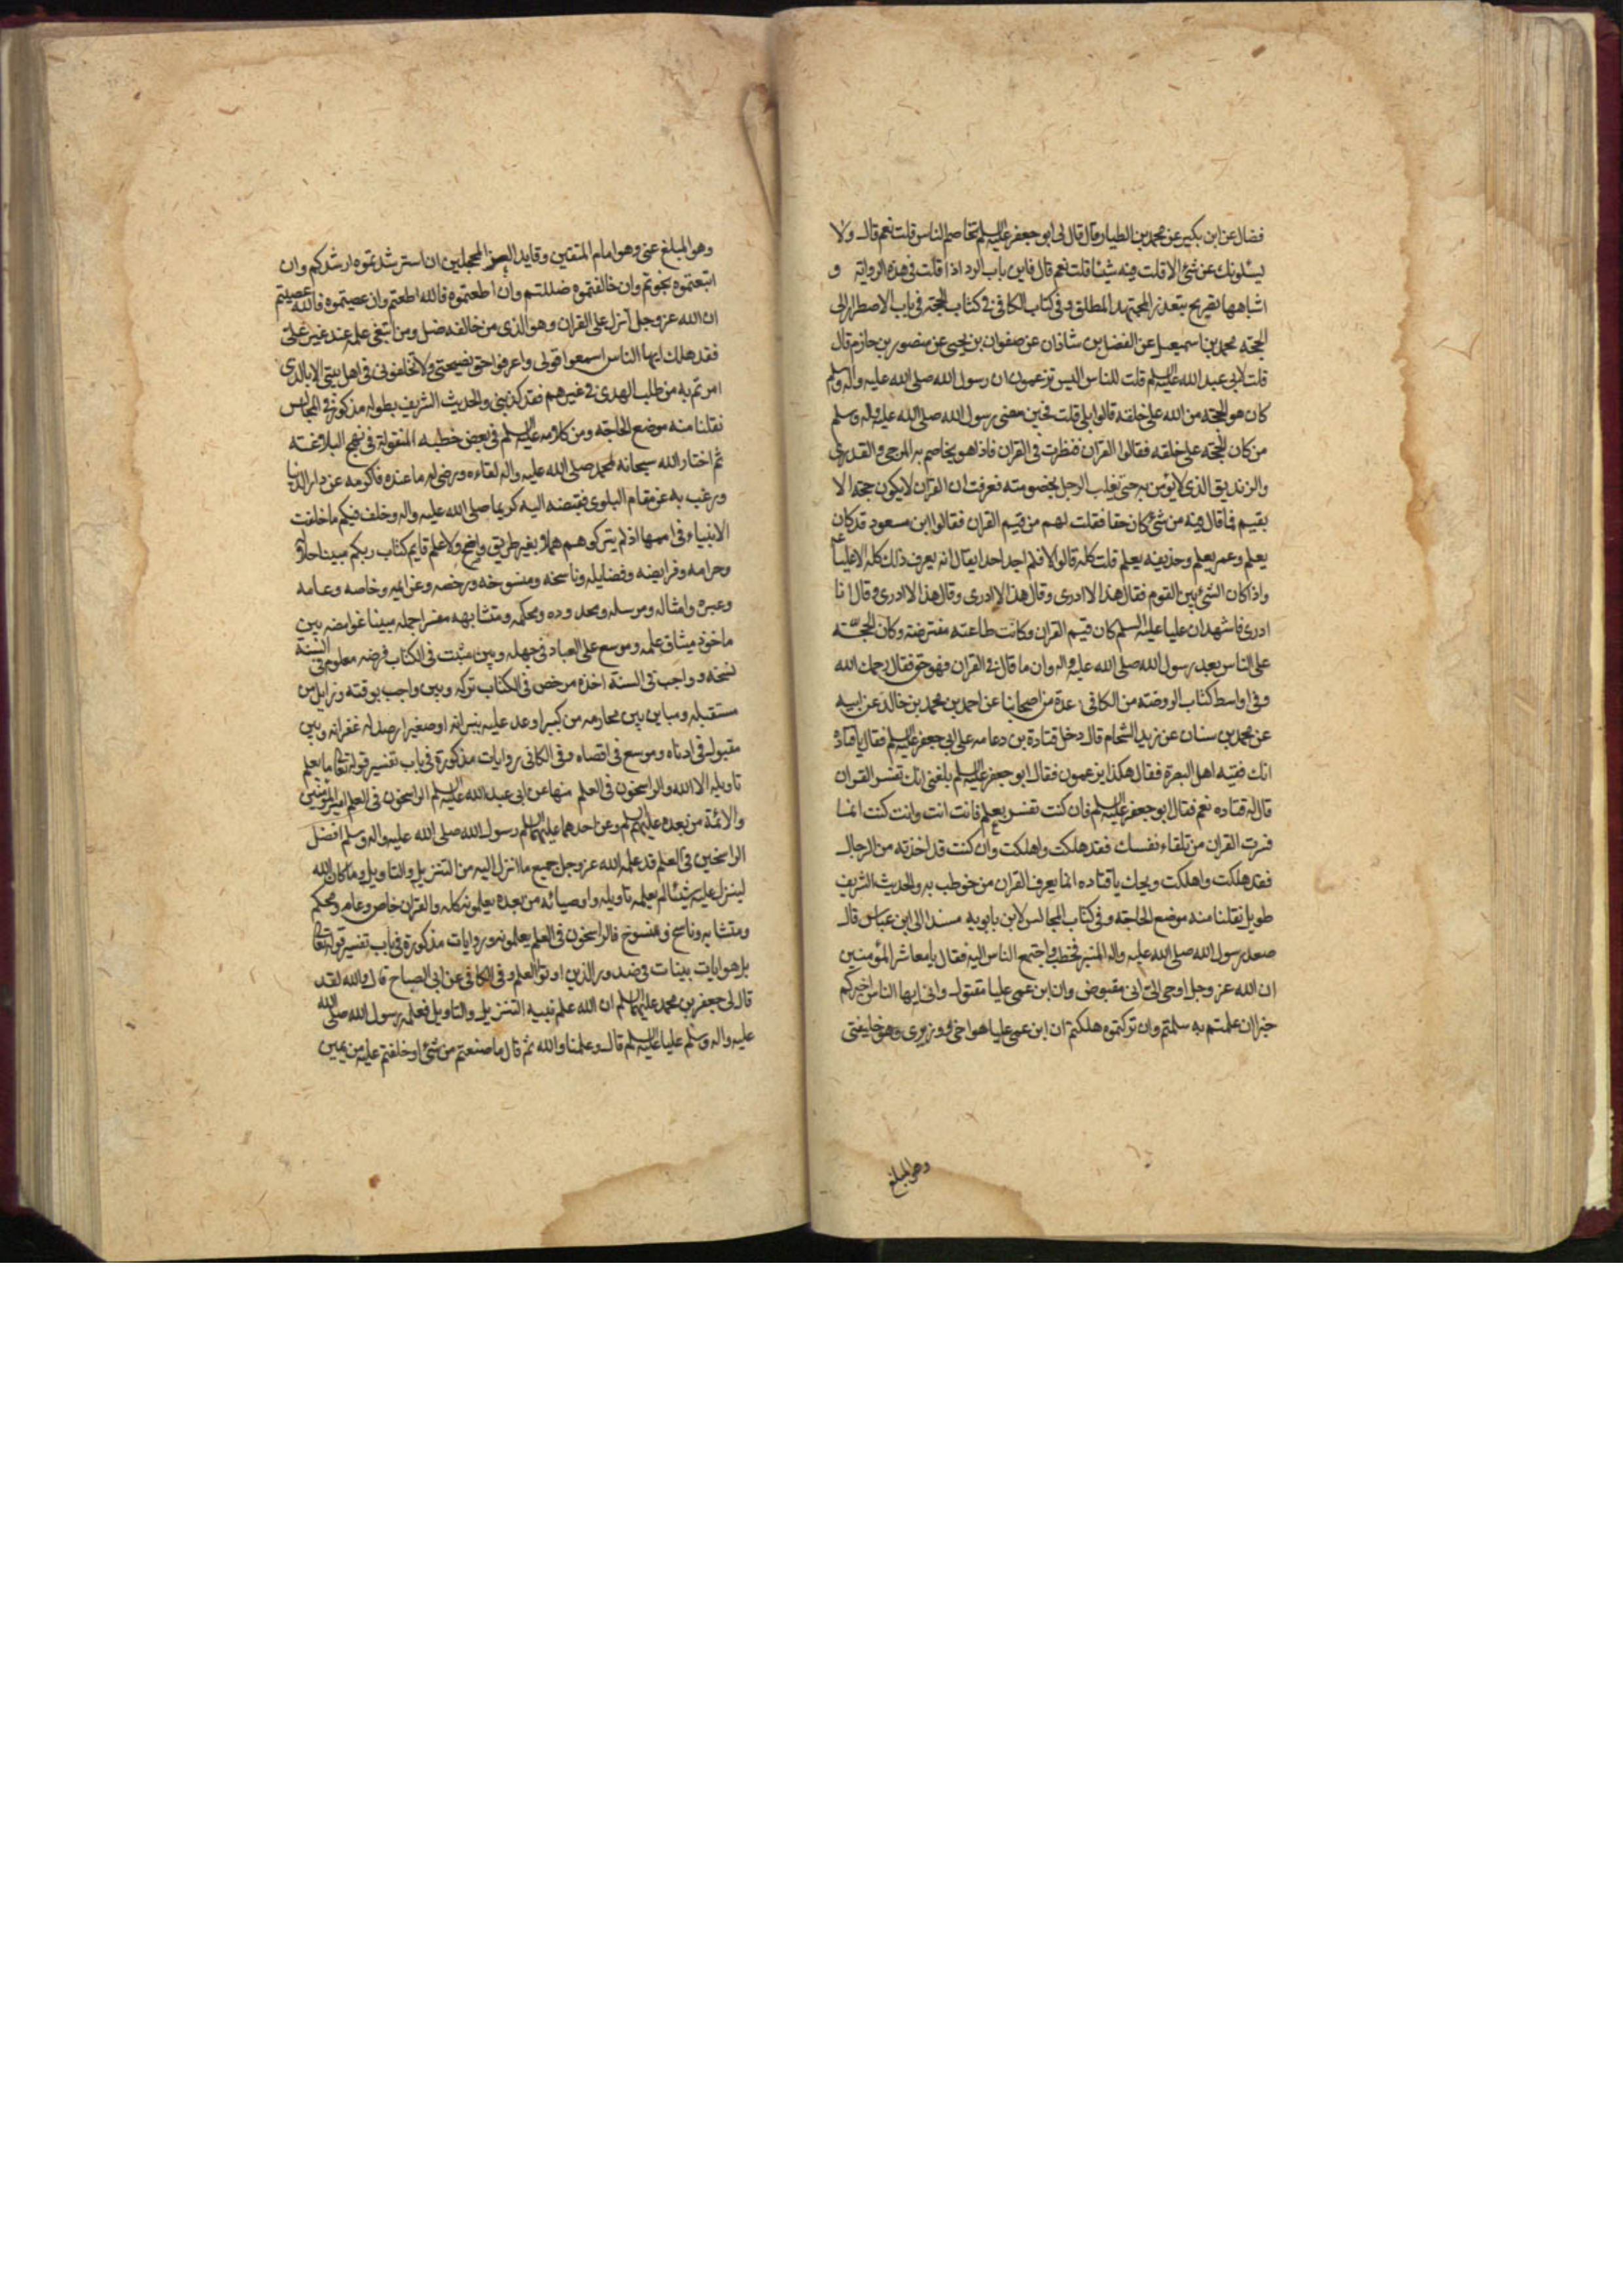 فضال عن ابن بكير عن محمد بن الطيار قال قال لى ابو جعفر عليه السلم تخاصم الناس قلت نعم قال ولا
يسئلونك عن شئ الا قلت فيه شيئا قلت نعم قال فاين باب الرد اذا قلت فى هذه الرواية و
اشباهها تصريح بتعذر المجتهد المطلق وفى كتاب الكافى فى كتاب الحجة فى باب الاضطرار الى
الحجة محمد بن اسمعيل عن الفضل بن شاذان عن صفوان بن يحيى عن منصور بن حازم قال
قلت لابى عبد الله عليه السلم قلت للناس اليس تزعمون ان رسول الله صلى الله عليه واله وسلم
كان هو الحجة من الله على خلقه قالوا بلى قلت فحين مضى رسول الله صلى الله عليه واله وسلم
من كان الحجة على خلقه فقالوا القران فنظرت فى القران فاذا هو يخاصم به المرجى والقدرى
والزنديق الذى لا يؤمن به حتى يغلب الرجل بخصومته فعرفت ان القران لا يكون حجة الا
بقيم فما قال فيه من شئ كان حقا فقلت لهم من قيم القران فقالوا ابن مسعود قد كان
يعلم وعمر يعلم وحذيفه يعلم قلت كله قالوا لا فلم اجد احدا يقال انه يعرف ذلك كله الا عليا ع
واذا كان الشئ بين القوم فقال هذا لا ادرى وقال هذا لا ادرى وقال هذا لا ادرى وقال انا
ادرى فاشهد ان عليا عليه السلم كان قيم القران وكانت طاعته مفترضة وكان الحجة
على الناس بعد رسول الله صلى الله عليه واله وان ما قال فى القران فهو حق فقال رحمك الله
وفى اواسط كتاب الروضة من الكافى عدة من اصحابنا عن احمد بن محمد بن خالد عن ابيه
عن محمد بن سنان عن زيد الشحام قال دخل قتادة بن دعامه على ابى جعفر عليه السلم فقال يا قتاده
انك فقيه اهل البصرة فقال هكذا يزعمون فقال ابو جعفر عليه السلم بلغنى انك تفسر القران
قال له قتاده نعم فقال ابو جعفر عليه السلم فان كنت تفسره بعلم فانت انت وانت كنت انما
فسرت القران من تلقاء نفسك فقد هلكت واهلكت وان كنت قد اخذته من الرجال
فقد هلكت واهلكت ويحك يا قتاده انما يعرف القران من خوطب به والحديث الشريف
طويل نقلنا منه موضع الحاجة وفى كتاب المجالس لابن بابويه مسندا الى ابن عباس قال
صعد رسول الله صلى الله عليه واله المنبر فخطب واجتمع الناس اليه فقال يا معاشر المؤمنين
ان الله عز وجل اوحى الى انى مقبوض وان ابن عمى عليا مقتول وانى ايها الناس اخبركم
خبرا ان علمتم به سلمتم وان تركتموه هلكتم ان ابن عمى عليا هو اخى ووزيرى وهو خليفتى
وهو المبلغ
وهو المبلغ عنى وهو امام المتقين وقايد الغر المحجلين ان استرشدتموه ارشدكم وان
اتبعتموه نجوتم وان خالفتموه ضللتم وان اطعتموه فالله اطعتم وان عصيتموه فالله عصيتم
ان الله عز وجل انزل على القران وهو الذى من خالفه ضل ومن ابتغى علمه عند غير على
فقد هلك ايها الناس اسمعوا قولى واعرفوا حق نصيحتى ولا تخلفونى فى اهل بيتى الا بالذى
امرتم به من طلب الهدى فى غيرهم فقد كذبنى والحديث الشريف بطوله مذكور فى المجالس
نقلنا منه موضع الحاجة ومن كلامه عليه السلم فى بعض خطبه المنقولة فى نهج البلاغة
ثم اختار الله سبحانه لمحمد صلى الله عليه واله لقاءه ورضى له ما عنده فاكرمه عن دار الدنيا
ورغب به عن مقام البلوى فقبضه اليه كريما صلى الله عليه واله وخلف فيكم ما خلفت
الانبياء فى اممها اذ لم يتركوهم هملا بغير طريق واضح ولا علم قايم كتاب ربكم مبينا حلاله
وحرامه وفرايضه وفضايله وناسخه ومنسوخه ورخصه وعزايمه وخاصه وعامه
وعبره وامثاله ومرسله ومحدوده ومحكمه ومتشابهه مفسرا جمله مبينا غوامضه بين
ماخوذ ميثاق علمه وموسع على العباد فى جهله وبين مثبت فى الكتاب فرضه معلوم فى السنة
نسخه وواجب فى السنة اخذه مرخص فى الكتاب تركه وبين واجب بوقته وزايل من
مستقبله ومباين بين محارمه من كبير اوعد عليه نيرانه او صغير ارصد له غفرانه وبين
مقبول فى ادناه وموسع فى اقصاه وفى الكافى روايات مذكورة فى باب تفسير قوله تعالى ما يعلم
تاويله الا الله والراسخون فى العلم منها عن ابى عبد الله عليه السلم الراسخون فى العلم امير المؤمنين
والائمة من بعده عليهم السلم وعن احدهما عليهما السلم رسول الله صلى الله عليه واله وسلم افضل
الراسخين فى العلم قد علمه الله عز وجل جميع ما انزل اليه من التنزيل والتاويل وما كان الله
لينزل عليه شيئا لم يعلمه تاويله واوصيائه من بعده يعلمونه كله والقران خاص وعام ومحكم
ومتشابه وناسخ ومنسوخ فالراسخون فى العلم يعلمونه وروايات مذكورة فى باب تفسير قوله تعالى
بل هو ايات بينات فى صدور الذين اوتوا العلم وفى الكافى عن ابى الصباح قال والله لقد
قال لى جعفر بن محمد عليهما السلم ان الله علم نبيه التنزيل والتاويل فعلمه رسول الله صلى الله
عليه واله وسلم عليا عليه السلم قال وعلمنا والله ثم قال ما صنعتم من شئ او حلفتم عليه من يمين